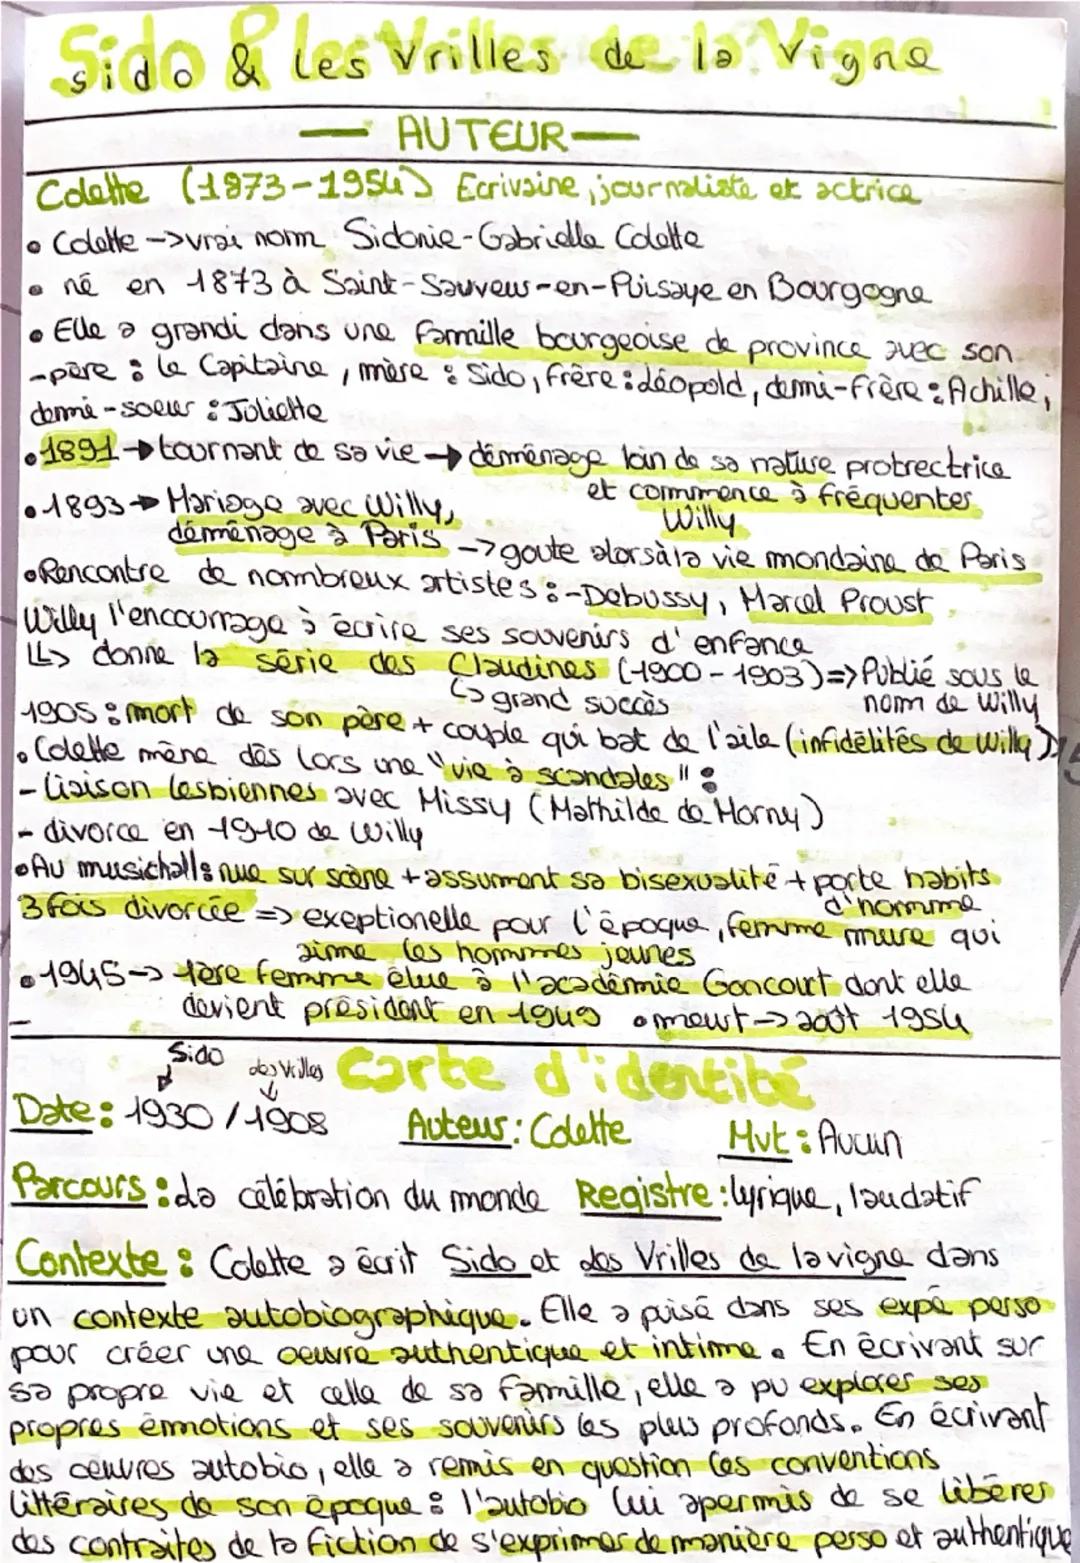 Sido & les Vrilles de la Vigne
— AUTEUR —
Colette (1873-1954) Ecrivaine, journaliste et actrice
• Colette -> vrai nom Sidonie-Gabrielle Colette
• né en 1873 à Saint-Sauveur-en-Puisaye en Bourgogne
• Elle a grandi dans une famille bourgeoise de province avec son
-père : le Capitaine, mère : Sido, frère : Léopold, demi-frère : Achille,
demi-soeur : Juliette
• 1891 → tournant de sa vie → déménage loin de sa nature protrectrice
et commence à fréquenter
Willy
• 1893 → Mariage avec Willy,
déménage à Paris -> goute alors à la vie mondaine de Paris
• Rencontre de nombreux artistes : -Debussy, Marcel Proust
Willy l'encourage à écrire ses souvenirs d'enfance
↳ donne la série des Claudines (1900-1903) => Publié sous le
nom de Willy
↳ grand succès
1905 : mort de son père + couple qui bat de l'aile (infidélités de Willy)
• Colette mène dès lors une "vie à scandales" :
- Liaison lesbiennes avec Missy (Mathilde de Morny)
- divorce en 1910 de Willy
• Au musichall : nue sur scène + assument sa bisexualité + porte habits
d'homme
3 fois divorcée => exeptionelle pour l'époque, femme mure qui
aime les hommes jeunes
• 1945 -> 1ère femme élue à l'académie Goncourt dont elle
devient président en 1949 • meurt -> août 1954
Sido les Vrilles
Carte d'identité
Date : 1930 / 1908 Auteur : Colette Mvt : Aucun
Parcours : la célébration du monde Registre : lyrique, laudatif
Contexte : Colette a écrit Sido et les Vrilles de la vigne dans
un contexte autobiographique. Elle a puisé dans ses expé perso
pour créer une oeuvre authentique et intime. En écrivant sur
sa propre vie et celle de sa famille, elle a pu explorer ses
propres émmotions et ses souvenirs les plus profonds. En écrivant
des oeuvres autobio, elle a remis en question les conventions
littéraires de son époque : l'autobio lui a permis de se libérer
des contraites de la fiction de s'exprimer de manière perso et authentique